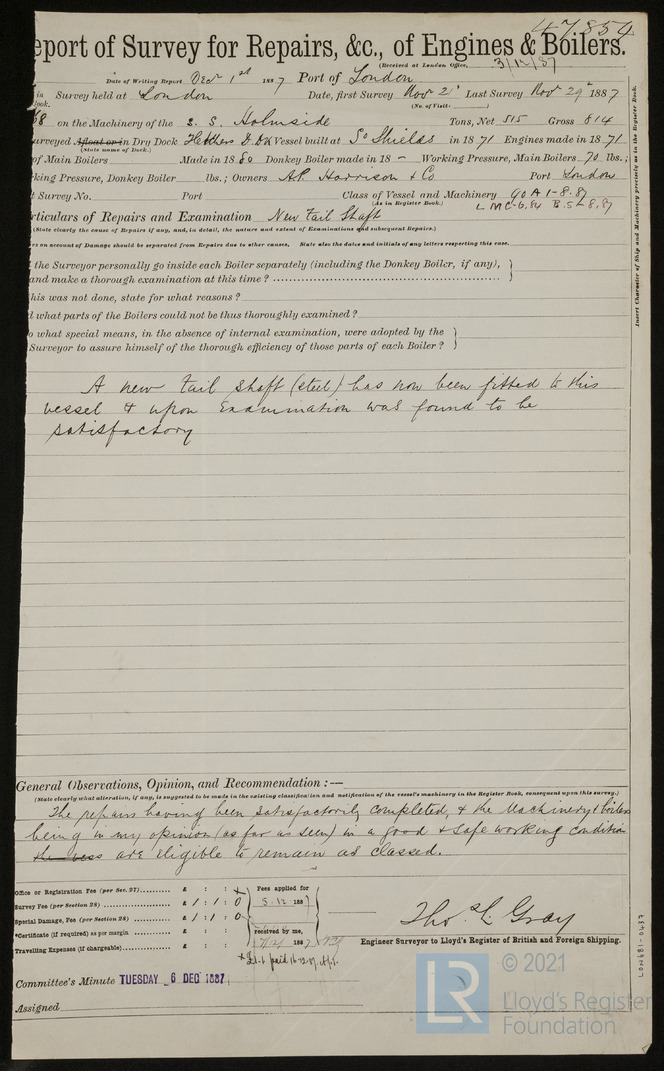 47,854
eport of Survey for Repairs, &c., of Engines & Boilers.
(Received at London Office, 3/12/87
Date of Writing Report Decr 1st 1887 Port of London
in Survey held at London Date, first Survey Nov 21st Last Survey Nov 29th 1887
ook. (No. of Visits )
68 on the Machinery of the S. S. Holmside Tons, Net 515 Gross 814
urveyed Afloat or in Dry Dock D. Dk Vessel built at So Shields in 1871 Engines made in 1871
(State name of Dock.)
of Main Boilers Made in 1880 Donkey Boiler made in 18 – Working Pressure, Main Boilers 70 lbs.;
king Pressure, Donkey Boiler lbs.; Owners Harrison & Co Port London
t Survey No. Port Class of Vessel and Machinery 90 A 1-8.87
(As in Register Book.) LMC-6.84 B.S-8.87
rticulars of Repairs and Examination New Tail Shaft
(State clearly the cause of Repairs if any, and, in detail, the nature and extent of Examinations and subsequent Repairs.)
rs on account of Damage should be separated from Repairs due to other causes. State also the dates and initials of any letters respecting this case.
the Surveyor personally go inside each Boiler separately (including the Donkey Boiler, if any),
and make a thorough examination at this time?
his was not done, state for what reasons?
d what parts of the Boilers could not be thus thoroughly examined?
o what special means, in the absence of internal examination, were adopted by the
Surveyor to assure himself of the thorough efficiency of those parts of each Boiler?
Insert Character of Ship and Machinery precisely as in the Register Book.
A new tail shaft (steel) has now been fitted to this
vessel & upon examination was found to be
satisfactory
General Observations, Opinion, and Recommendation :—
(State clearly what alteration, if any, is suggested to be made in the existing classification and notification of the vessel's machinery in the Register Book, consequent upon this survey.)
The repairs having been satisfactorily completed, & the Machinery & boilers
being in my opinion (as far as seen) in a good & safe working condition
are eligible to remain as classed.
Office or Registration Fee (per Sec. 27) £ : :
Survey Fee (per Section 28) £ 1 : 1 : 0
Special Damage, Fee (per Section 28) £ 1 : 1 : 0
*Certificate (if required) as per margin £ : :
Travelling Expenses (if chargeable) £ : :
Fees applied for
5.12 1887
received by me,
1887
paid 16.12.87
Thos. L. Gray
Engineer Surveyor to Lloyd's Register of British and Foreign Shipping.
Committee's Minute TUESDAY 6 DEC 1887
Assigned
LON681-0437
© 2021
LR
Lloyd's Register
Foundation